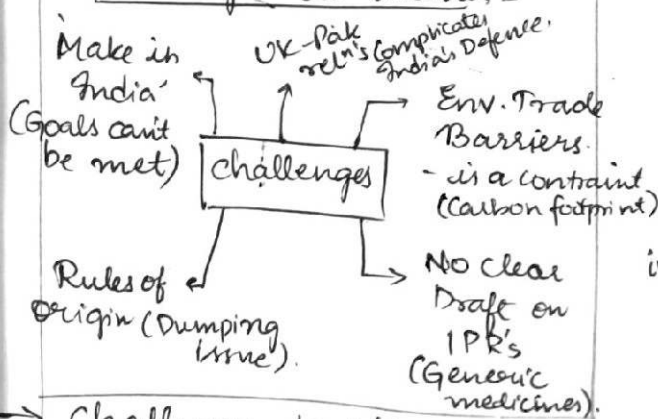 'Make in
India'
(Goals can't
be met)
UK-Pak
reln's Complicates
India's Defence.
Env. Trade
Barriers.
- is a contraint
(Carbon footprint)
challenges
Rules of
Origin (Dumping
issue).
No clear
Draft on
IPR's
(Generic
medicines).